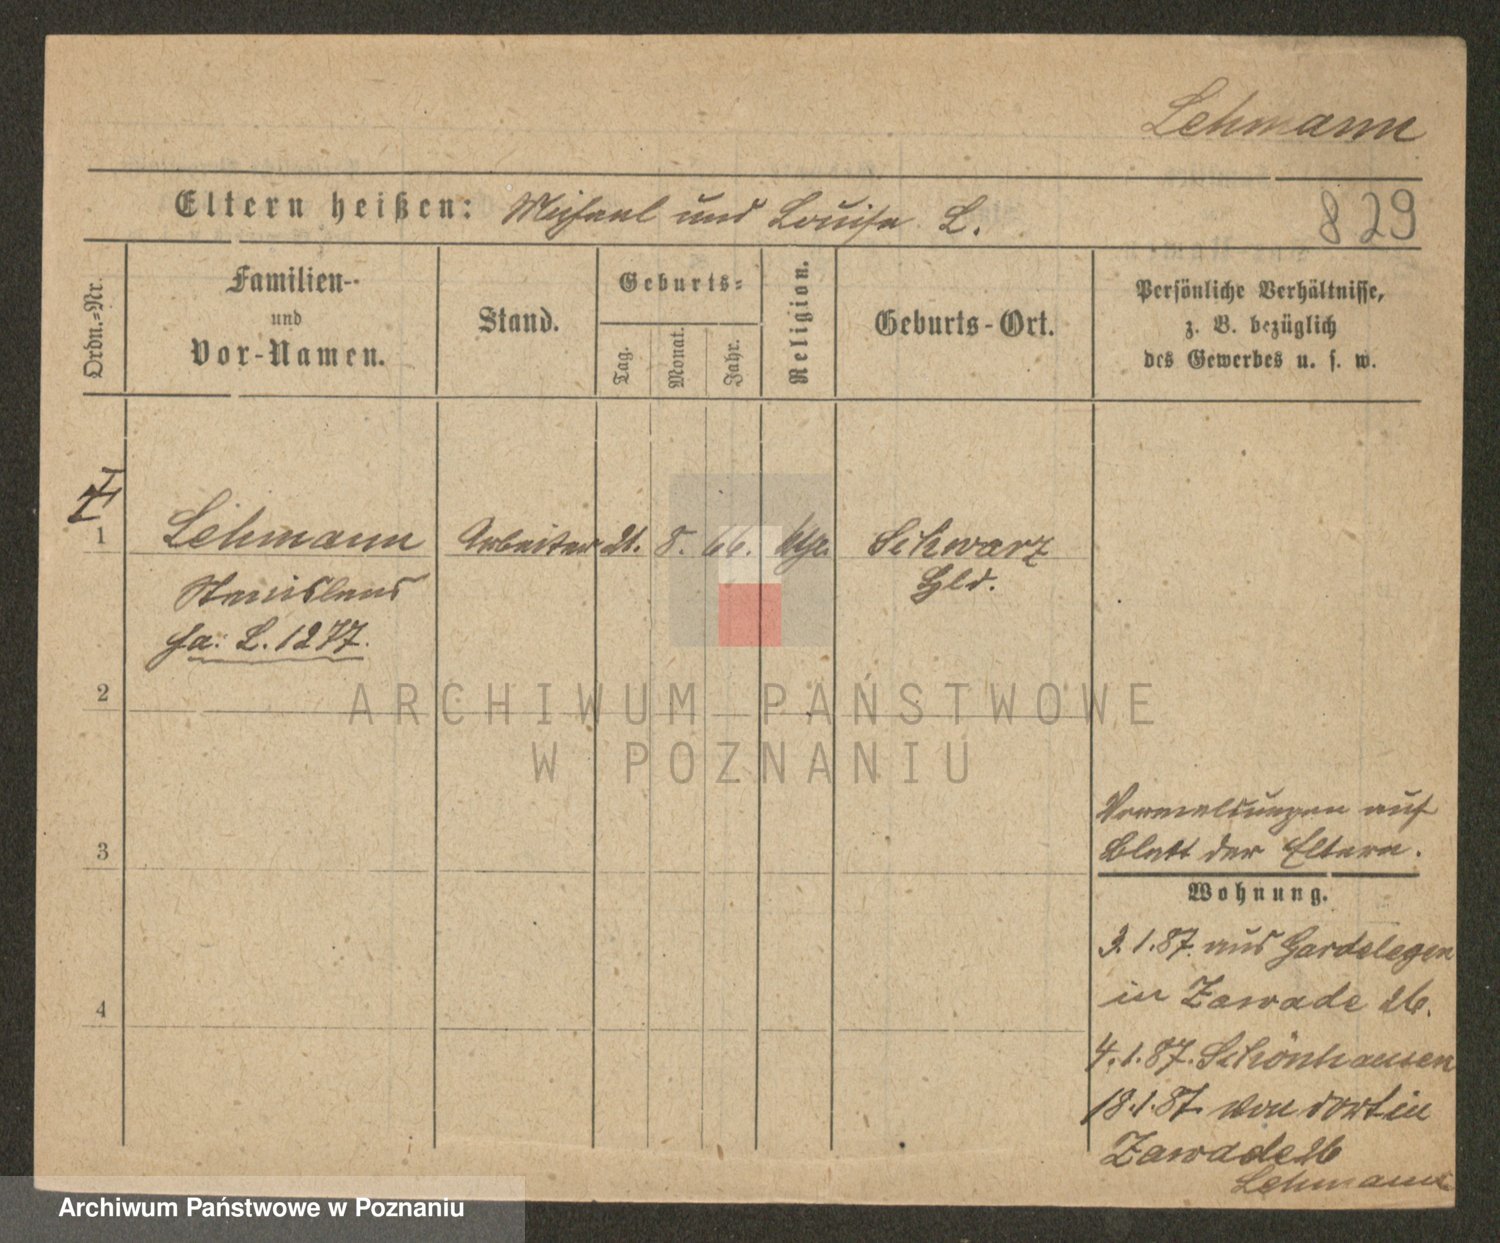 Lehmann
Eltern heißen: Michael und Louise L.
829
Ordn.-Nr.
Familien-
und
Vor-Namen.
Stand.
Geburts-
Tag.
Monat.
Jahr.
Religion.
Geburts-Ort.
Persönliche Verhältnisse,
z. B. bezüglich
des Gewerbes u. s. w.
1
Lehmann
Arbeiter
21.
8.
66.
Schwarz
Hld.
Stanislaus
L. 1277.
2
ARCHIWUM PAŃSTWOWE
W POZNANIU
3
Vormeldungen auf
Blatt der Eltern.
Wohnung.
3.1.87. aus Gardelegen
in Zawade 26.
4
4.1.87. Schönhausen
18.1.87. von dort in
Zawade 26
Lehmann
Archiwum Państwowe w Poznaniu